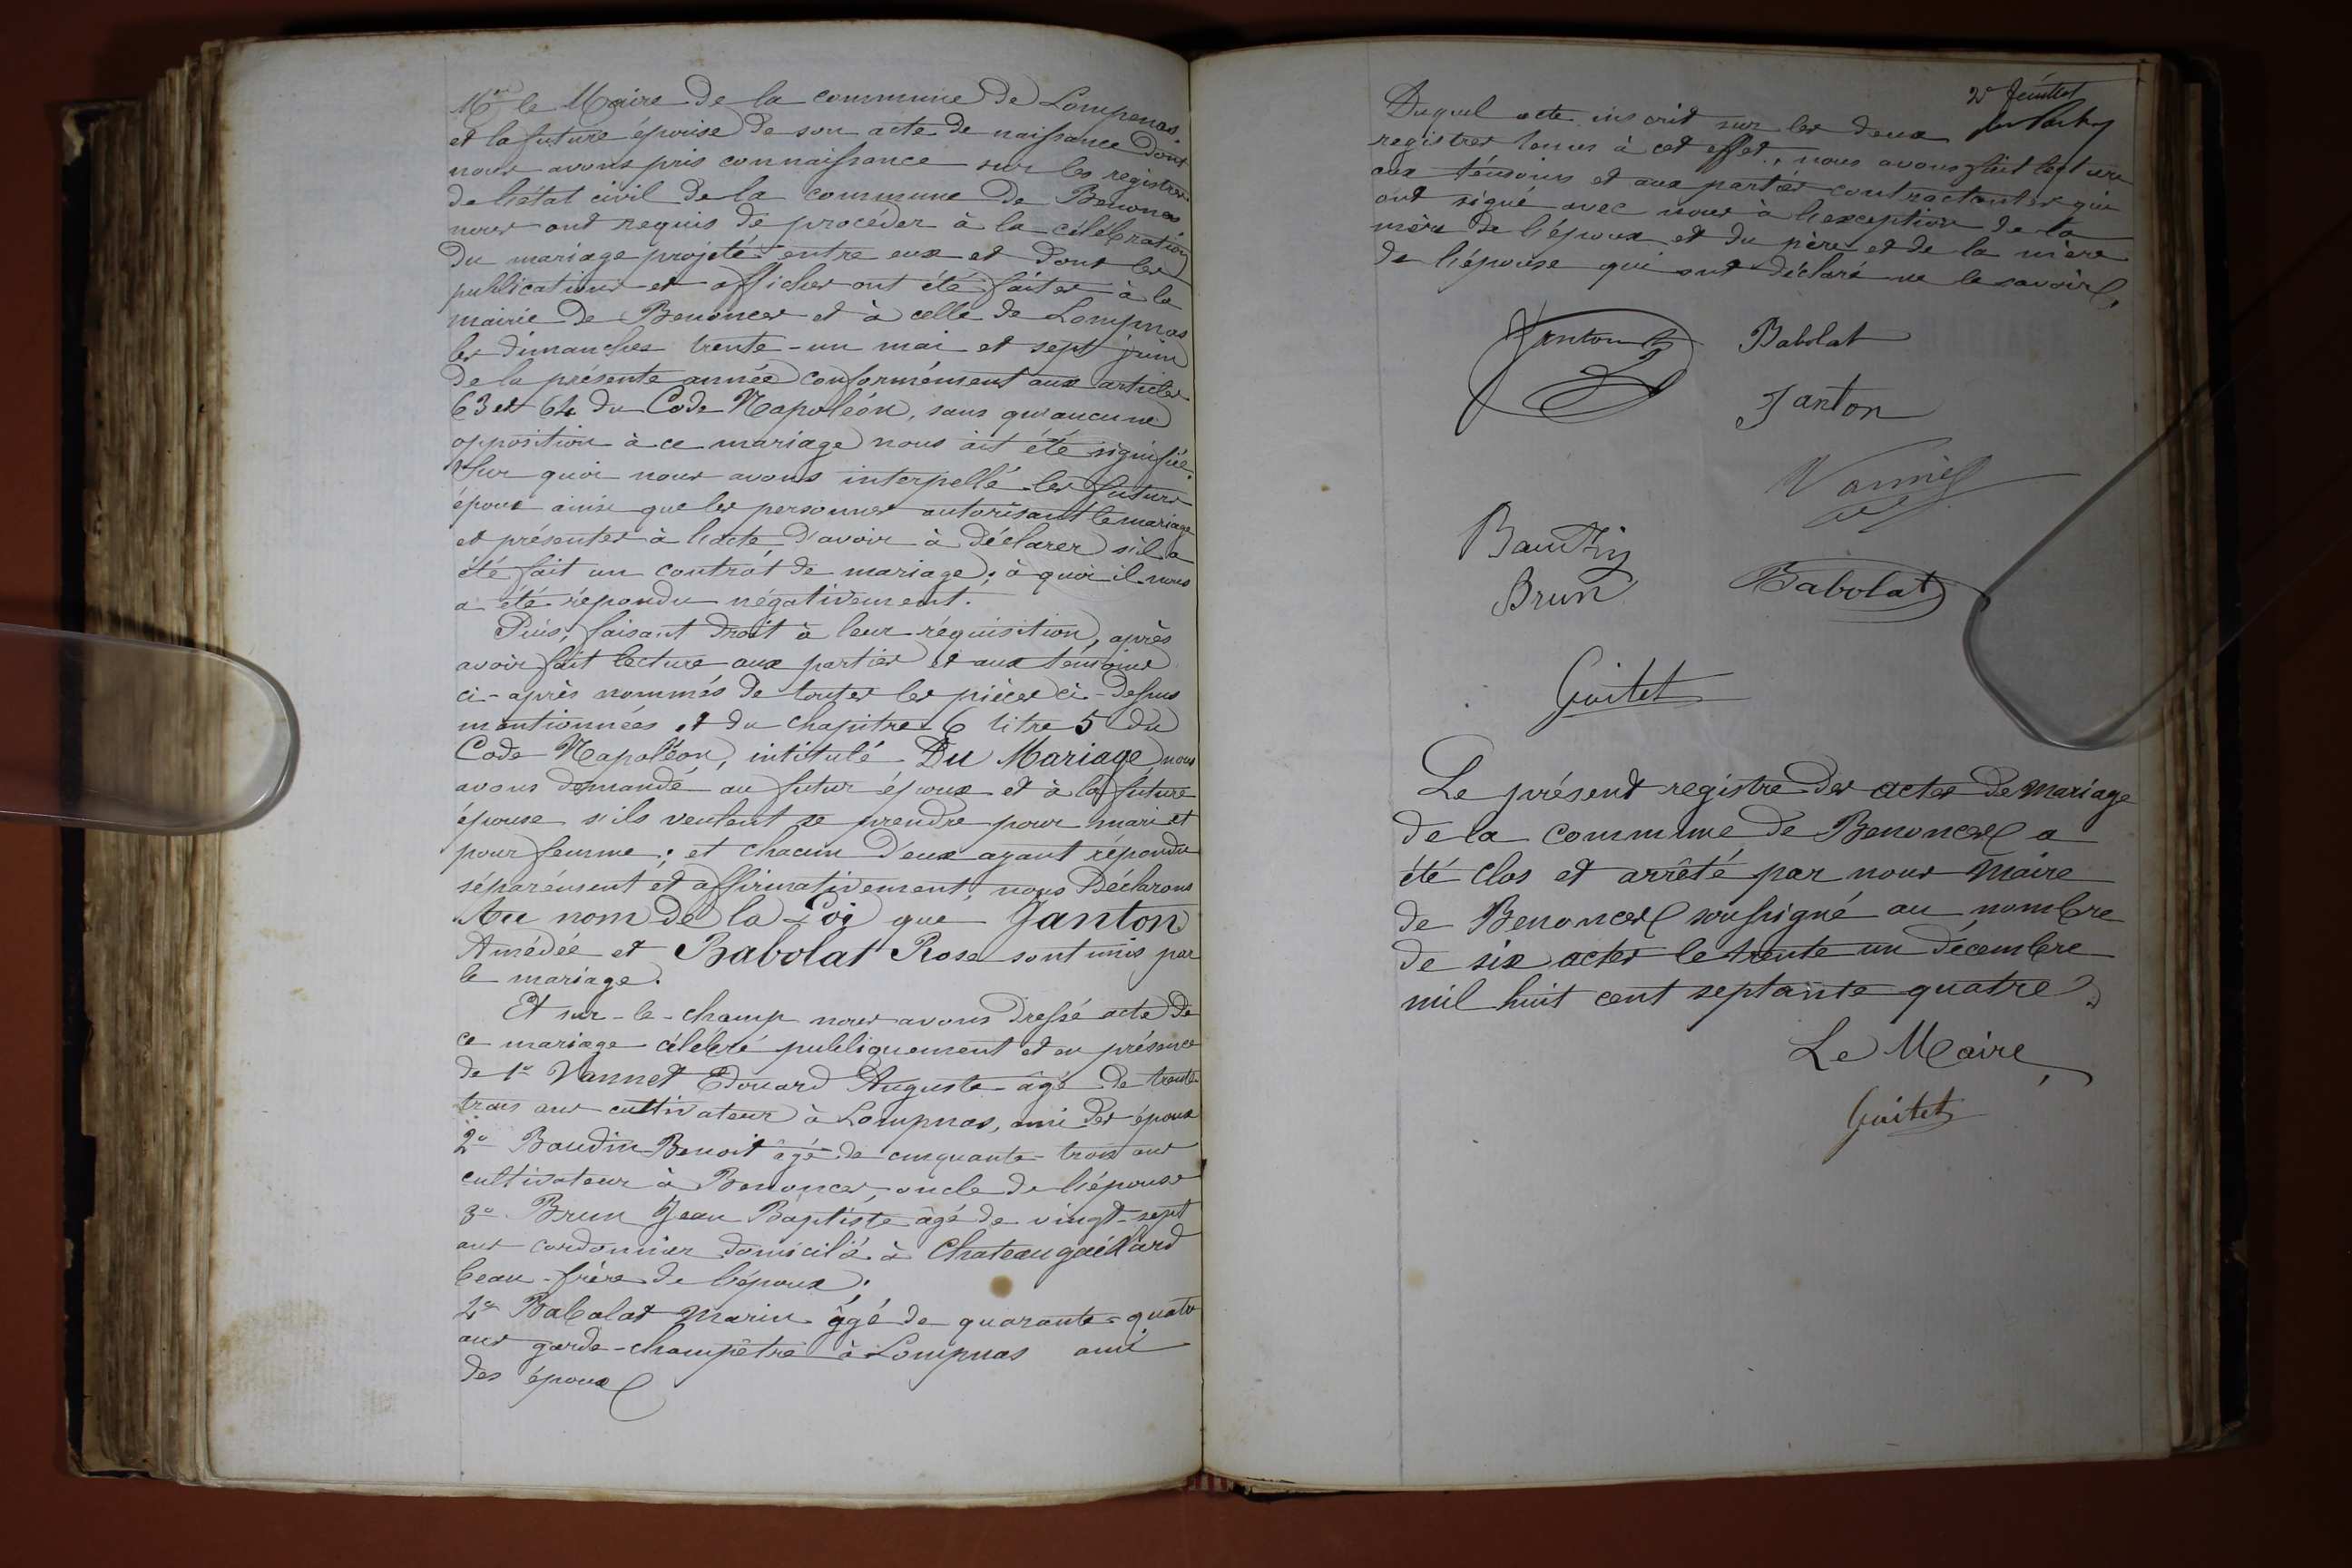 Mr le Maire de la commune de Lompenas
et la future épouse de son acte de naissance dont
nous avons pris connaissance sur les registres
de l'état civil de la commune de Benonces
nous ont requis de procéder à la célébration
du mariage projeté entre eux et dont les
publications et affiches ont été faites à la
mairie de Benonces et à celle de Lompnas
les dimanches trente-un mai et sept juin
de la présente année conformément aux articles
63 et 64 du Code Napoléon, sans qu'aucune
opposition à ce mariage nous ait été signifiée.
Sur quoi nous avons interpellé les futurs
époux ainsi que les personnes autorisant le mariage
et présentes à l'acte d'avoir à déclarer s'il a
été fait un contrat de mariage; à quoi il nous
a été répondu négativement.
Puis, faisant droit à leur réquisition, après
avoir fait lecture aux parties et aux témoins
ci-après nommés de toutes les pièces ci-dessus
mentionnées et du chapitre 6 titre 5 du
Code Napoléon, intitulé Du Mariage, nous
avons demandé au futur époux et à la future
épouse s'ils veulent se prendre pour mari et
pour femme; et chacun d'eux ayant répondu
séparément et affirmativement, nous Déclarons
Au nom de la Loi que Janton
Amédée et Babolat Rose sont unis par
le mariage.
Et sur-le-champ nous avons dressé acte de
ce mariage célébré publiquement et en présence
de 1º Vannet Edouard Auguste âgé de trente-
trois ans cultivateur à Lompnas, ami des époux
2º Baudin Benoit âgé de cinquante-trois ans
cultivateur à Benonces, oncle de l'épouse
3º Brun Jean Baptiste âgé de vingt-sept
ans cordonnier domicilié à Chateaugaillard
beau-frère de l'époux;
4º Babolat Marin âgé de quarante-quatre
ans garde-champêtre à Lompnas ami
des époux
2e feuillet
Duquel acte inscrit sur les deux
registres tenus à cet effet, nous avons fait lecture
aux témoins et aux parties contractantes qui
ont signé avec nous à l'exception de la
mère de l'époux et du père et de la mère
de l'épouse qui ont déclaré ne le savoir.
Janton Babolat
Janton
Baudin
Brun Babolat
Guitet
Le présent registre des actes de mariage
de la commune de Benonces a
été clos et arrêté par nous Maire
de Benonces soussigné au nombre
de six actes le trente un décembre
mil huit cent septante quatre.
Le Maire,
Guitet